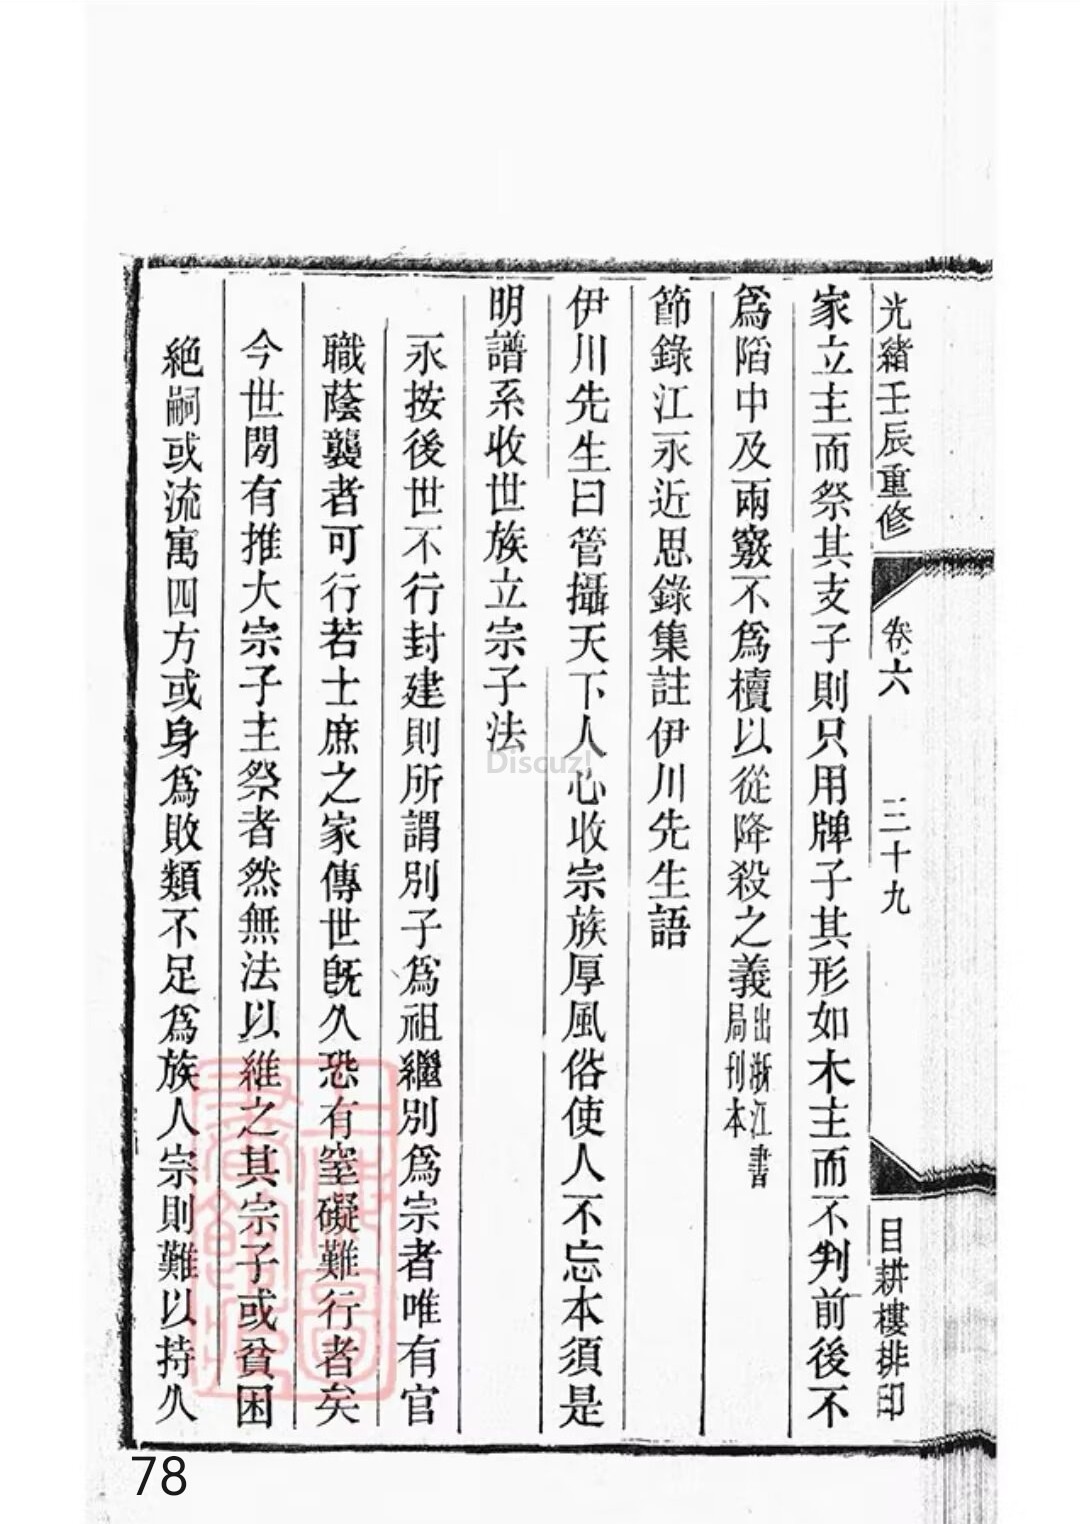 光緒壬辰重修 卷六 三十九 目耕樓排印
家立主而祭其支子則只用牌子其形如木主而不判前後不
爲䧟中及兩竅不爲櫝以從降殺之義出浙江書局刊本
節錄江永近思錄集註伊川先生語
伊川先生曰管攝天下人心收宗族厚風俗使人不忘本須是
明譜系收世族立宗子法
永按後世不行封建則所謂別子爲祖繼別爲宗者唯有官
職蔭襲者可行若士庶之家傳世旣久恐有窒礙難行者矣
今世閒有推大宗子主祭者然無法以維之其宗子或貧困
絕嗣或流寓四方或身爲敗類不足爲族人宗則難以持久
Discuz!
78